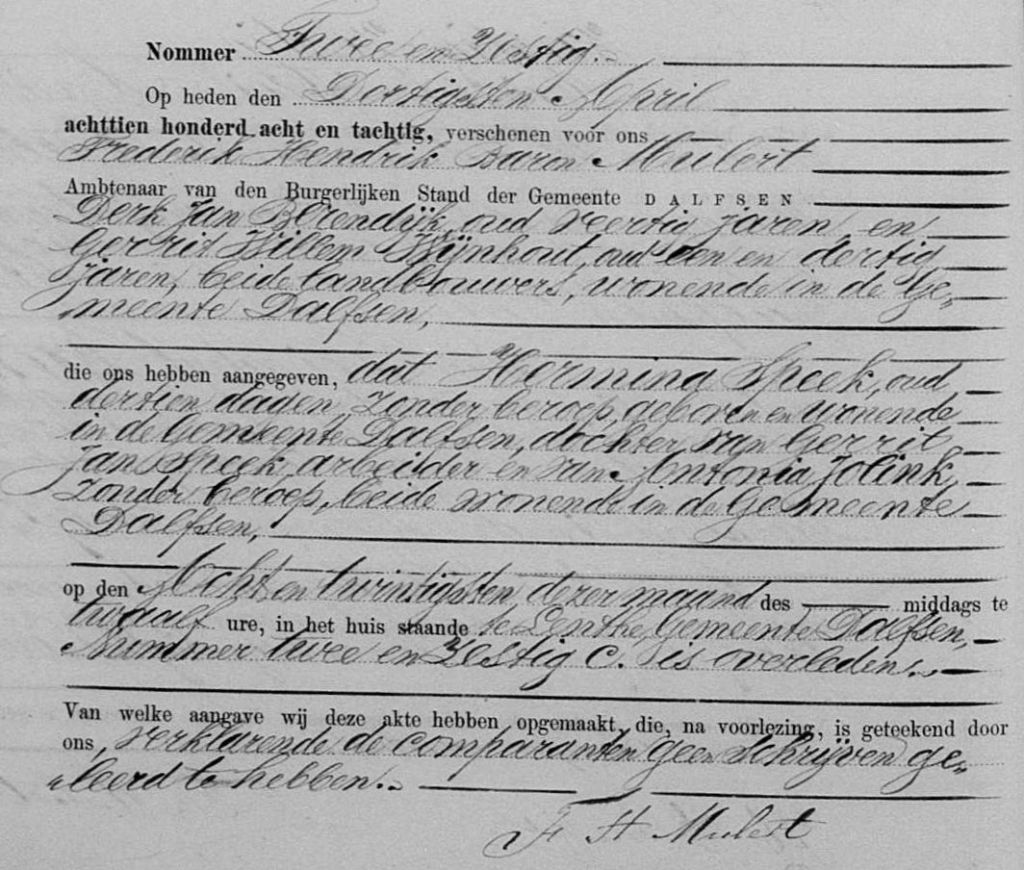 Nommer Twee en Zestig.
Op heden den Dertigsten April
achttien honderd acht en tachtig, verschenen voor ons
Frederik Hendrik Baron Mulert
Ambtenaar van den Burgerlijken Stand der Gemeente DALFSEN
Derk Jan Berendijk, oud veertig jaren en
Gerrit Willem Wijnhout, oud een en dertig
jaren, beide landbouwers, wonende in de Ge-
meente Dalfsen,
die ons hebben aangegeven, dat Hermina Speek, oud
dertien dagen, zonder beroep, geboren en wonende
in de Gemeente Dalfsen, dochter van Gerrit
Jan Speek, arbeidder en van Antonia Jolink,
zonder beroep, beide wonende in de Gemeente
Dalfsen,
op den Acht en twintigsten, dezer maand des middags te
twaalf ure, in het huis staande te Lenthe, Gemeente Dalfsen,
Nummer twee en Zestig C. is overleden.
Van welke aangave wij deze akte hebben opgemaakt, die, na voorlezing, is geteekend door
ons, verklarende de comparanten geen schrijven ge-
leerd te hebben.
F H Mulert